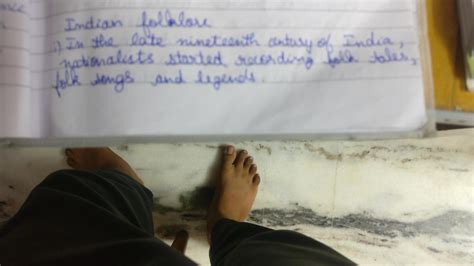 Indian folklore
i) In the late nineteenth century of India,
nationalists started recording folk tales,
folk songs and legends.